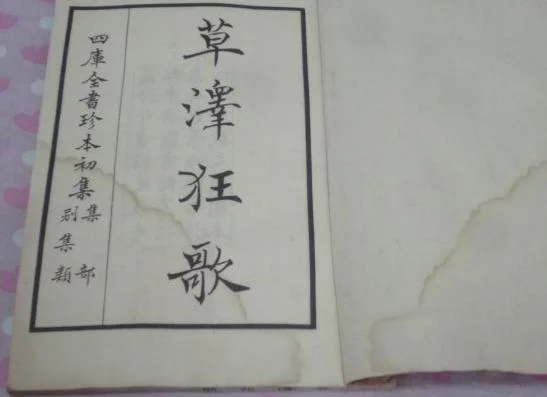 草澤狂歌
四庫全書珍本初集
集部
別集類